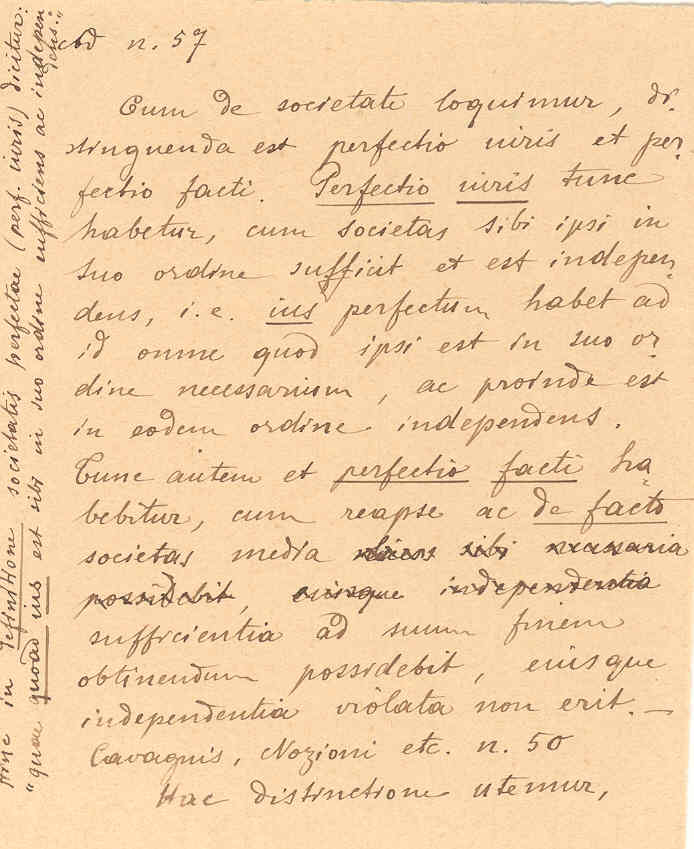 ad n. 57
Cum de societate loquimur, di-
stinguenda est perfectio iuris et per-
fectio facti. Perfectio iuris tunc
habetur, cum societas sibi ipsi in
suo ordine sufficit et est indepen-
dens, i.e. ius perfectum habet ad
id omne quod ipsi est in suo or-
dine necessarium, ac proinde est
in eodem ordine independens.
Tunc autem et perfectio facti ha-
bebitur, cum reapse ac de facto
societas media sibi necessaria
possidebit, eiusque independentia
sufficientia ad suum finem
obtinendum possidebit, eiusque
independentia violata non erit. —
Cavagnis, Nozioni etc. n. 50
Hac distinctione utemur,
Hinc in definitione societatis perfectae (perf. iuris) dicitur:
"quae quoad ius est sibi in suo ordine sufficiens ac indepen
dens."